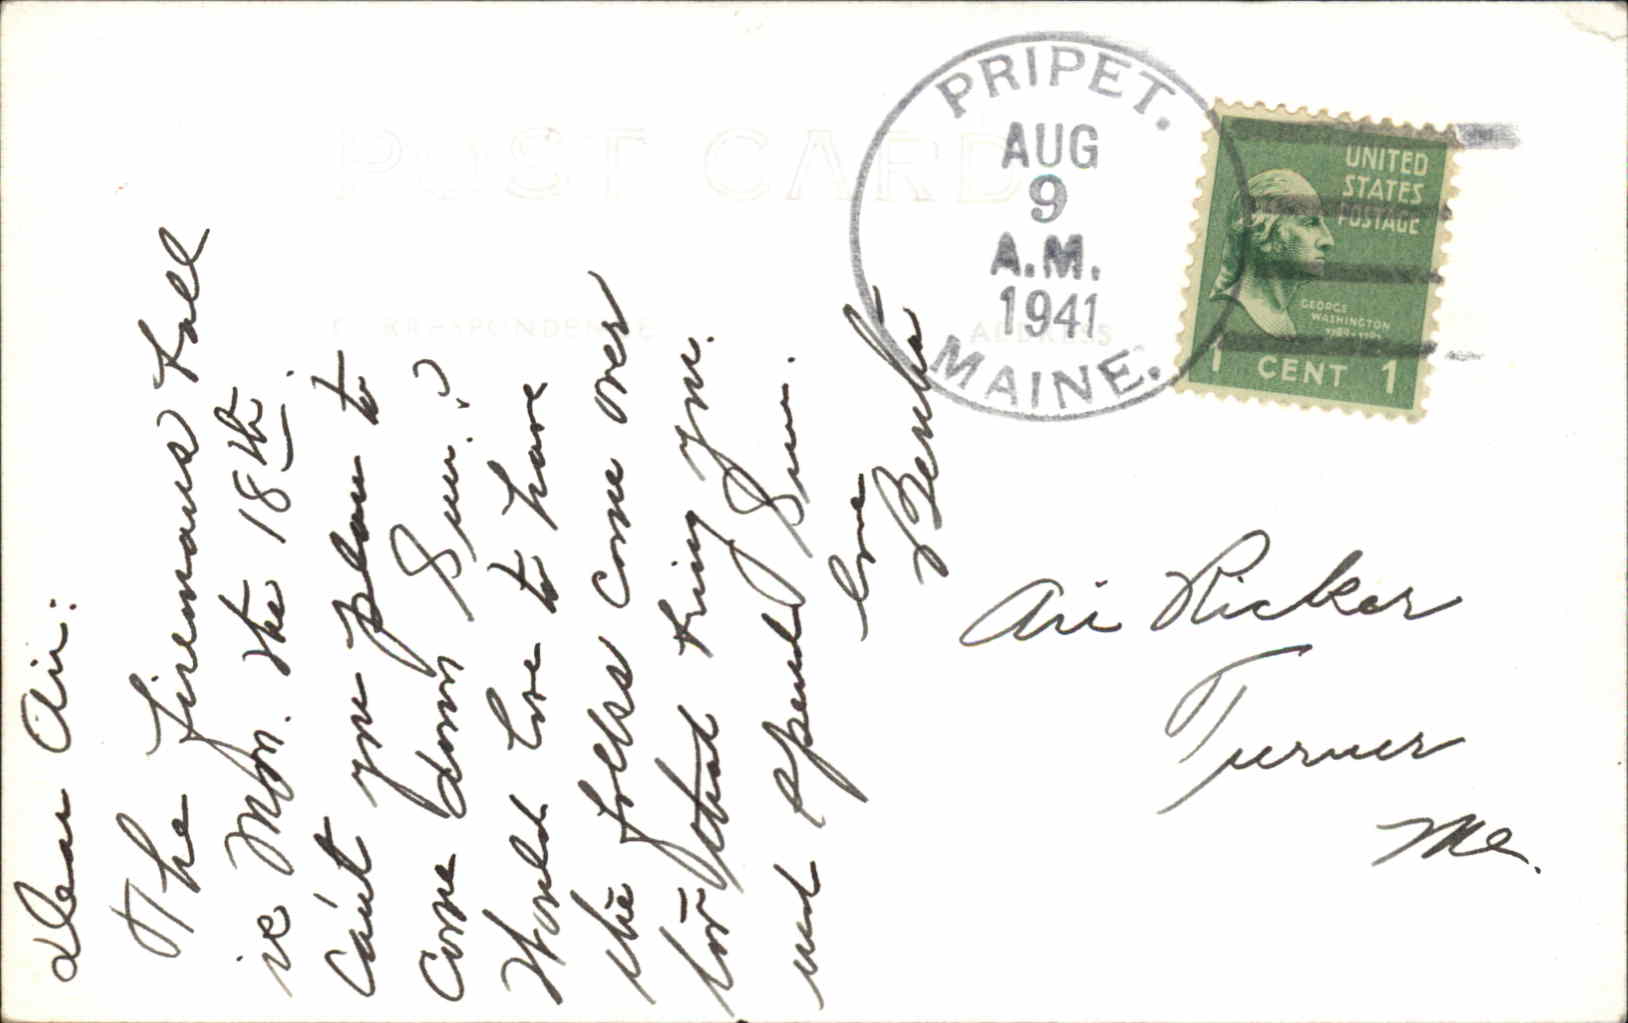 POST CARD
CORRESPONDENCE
ADDRESS
PRIPET.
AUG
9
A.M.
1941
MAINE.
UNITED
STATES
POSTAGE
GEORGE
WASHINGTON
1789-1797
1 CENT 1
Dear Ari:
The Firemans Ball
is Mon. the 18th.
Can't you plan to
come down Sun.?
Would love to have
the folks come over
to bring you.
and spend Sun.
Love
Bertha
Ari Ricker
Turner
Me.